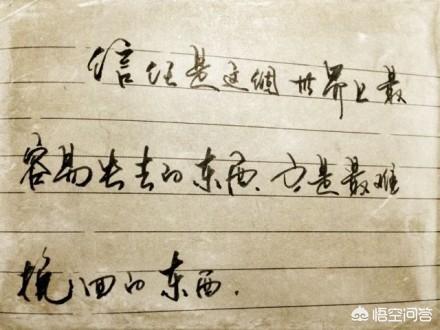 信任是这個世界上最
容易失去的东西、亦是最难
挽回的东西.
悟空问答